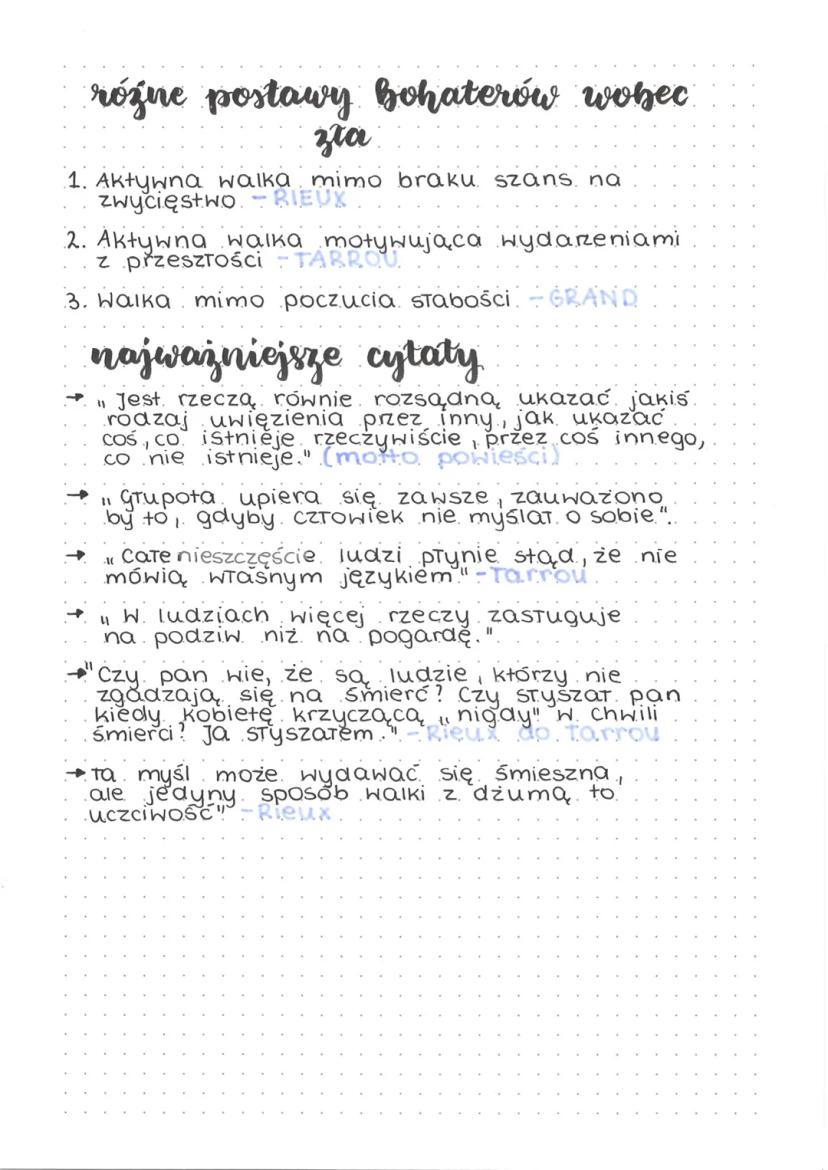 różne postawy bohaterów wobec
zła
1. Aktywna walka mimo braku szans na
zwycięstwo - RIEUX
2. Aktywna walka motywująca wydarzeniami
z przeszłości - TARROU
3. Walka mimo poczucia słabości - GRAND
najważniejsze cytaty
→ „Jest rzeczą równie rozsądną ukazać jakiś
rodzaj uwięzienia przez inny, jak ukazać
coś, co istnieje rzeczywiście, przez coś innego,
co nie istnieje." (motto powieści)
→ „Głupota upiera się zawsze, zauważono
by to, gdyby człowiek nie myślał o sobie".
→ „Całe nieszczęście ludzi płynie stąd, że nie
mówią własnym językiem." - Tarrou
→ „W ludziach więcej rzeczy zasługuje
na podziw niż na pogardę."
→ "Czy pan wie, że są ludzie, którzy nie
zgadzają się na śmierć? Czy słyszał pan
kiedy kobietę krzyczącą „nigdy" w chwili
śmierci? Ja słyszałem." - Rieux do Tarrou
→ Ta myśl może wydawać się śmieszną,
ale jedyny sposób walki z dżumą to
uczciwość" - Rieux